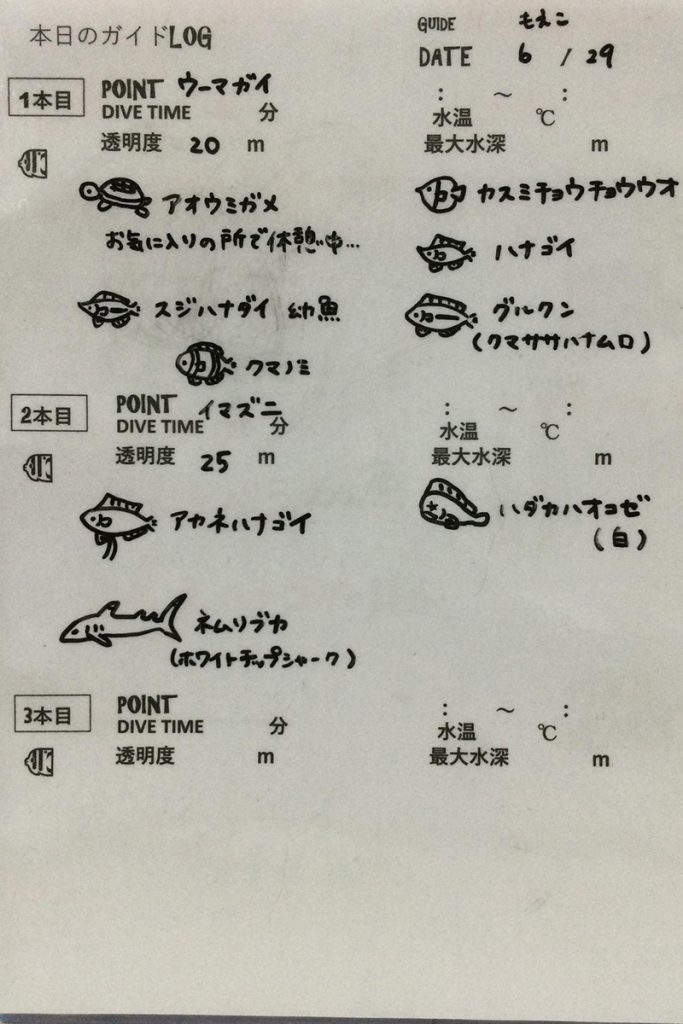 本日のガイドLOG
GUIDE もえこ
DATE 6 / 29
1本目 POINT ウーマガイ : ～ :
DIVE TIME 分 水温 ℃
透明度 20 m 最大水深 m
アオウミガメ カスミチョウチョウウオ
お気に入りの所で休憩中… ハナゴイ
スジハナダイ 幼魚 グルクン
(クマササハナムロ)
クマノミ
2本目 POINT イマズニ : ～ :
DIVE TIME 分 水温 ℃
透明度 25 m 最大水深 m
アカネハナゴイ ハダカハオコゼ
(白)
ネムリブカ
(ホワイトチップシャーク)
3本目 POINT : ～ :
DIVE TIME 分 水温 ℃
透明度 m 最大水深 m